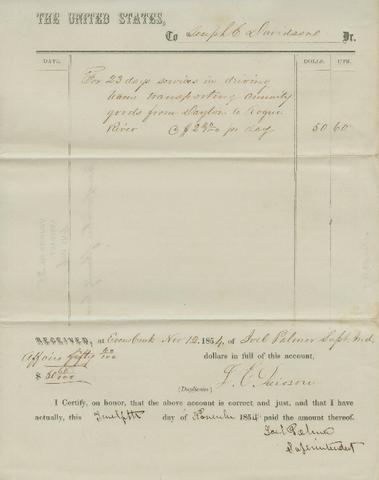 THE UNITED STATES,
To Joseph C Davidson Dr.
DATE. DOLLS. CTS.
For 23 days services in driving
team transporting annuity
goods from Dayton to Rogue
River @ $ 2 20/100 per day 50 60
RECEIVED, at Evans Creek Nov 12, 1854, of Joel Palmer Supt. Ind.
Affairs fifty 60/100 dollars in full of this account,
$ 50 60/100
(Duplicates)
I Certify, on honor, that the above account is correct and just, and that I have
actually, this Twelfth day of November 1854 paid the amount thereof.
Joel Palmer
Superintendent